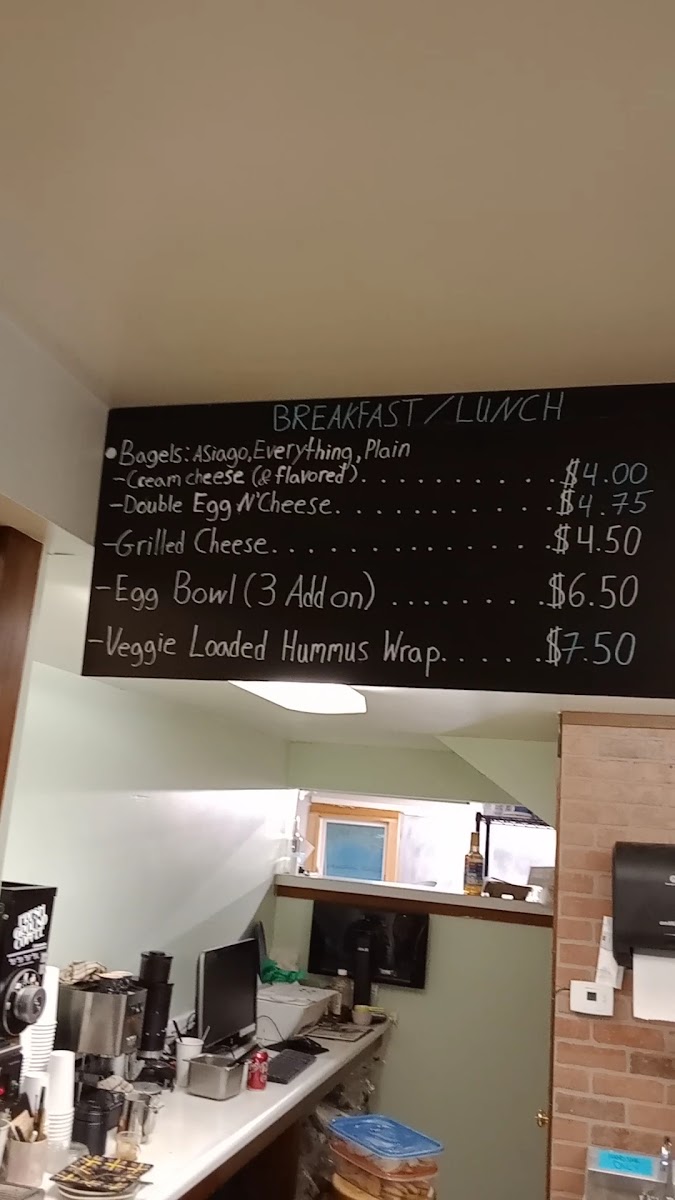 BREAKFAST/LUNCH
•Bagels: Asiago, Everything, Plain
-Cream cheese (& flavored). . . . . . . . . . . .$4.00
-Double Egg N' Cheese. . . . . . . . . . . . .$4.75
-Grilled Cheese. . . . . . . . . . . . . .$4.50
-Egg Bowl (3 Add on) . . . . . . . .$6.50
-Veggie Loaded Hummus Wrap. . . . . .$7.50